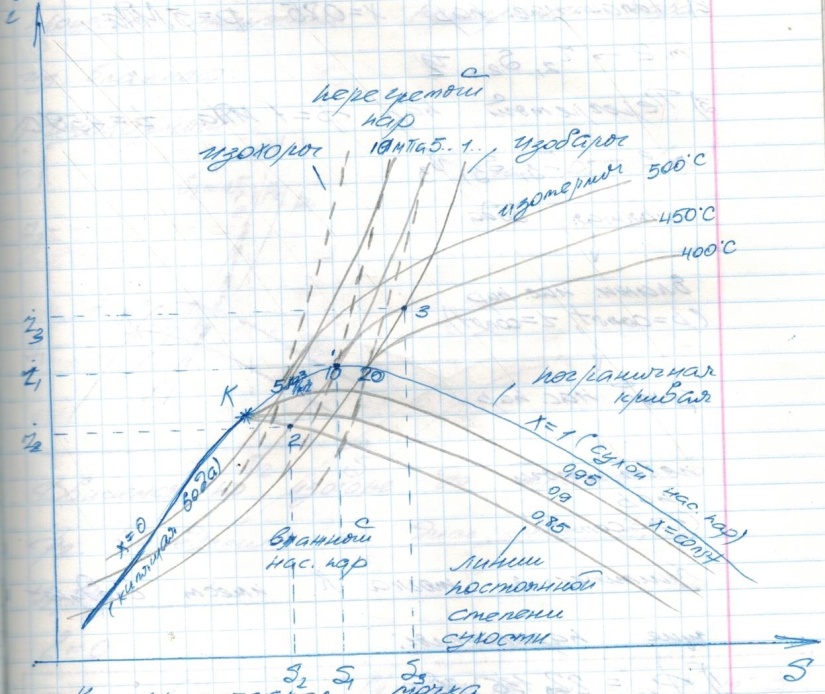 i
перегретый
пар
изохоры
10 мПа 5.. 1..
изобары
изотермы
500°C
450°C
400°C
i₃
3
i₁
5 м³/кг
1
10
20
K
пограничная
кривая
i₂
2
x=1 (сухой нас. пар)
0,95
x=const
0,9
0,85
x=0
(кипящая вода)
влажный
нас. пар
линии
постоянной
степени
сухости
S₂ S₁ S₃
S
точка